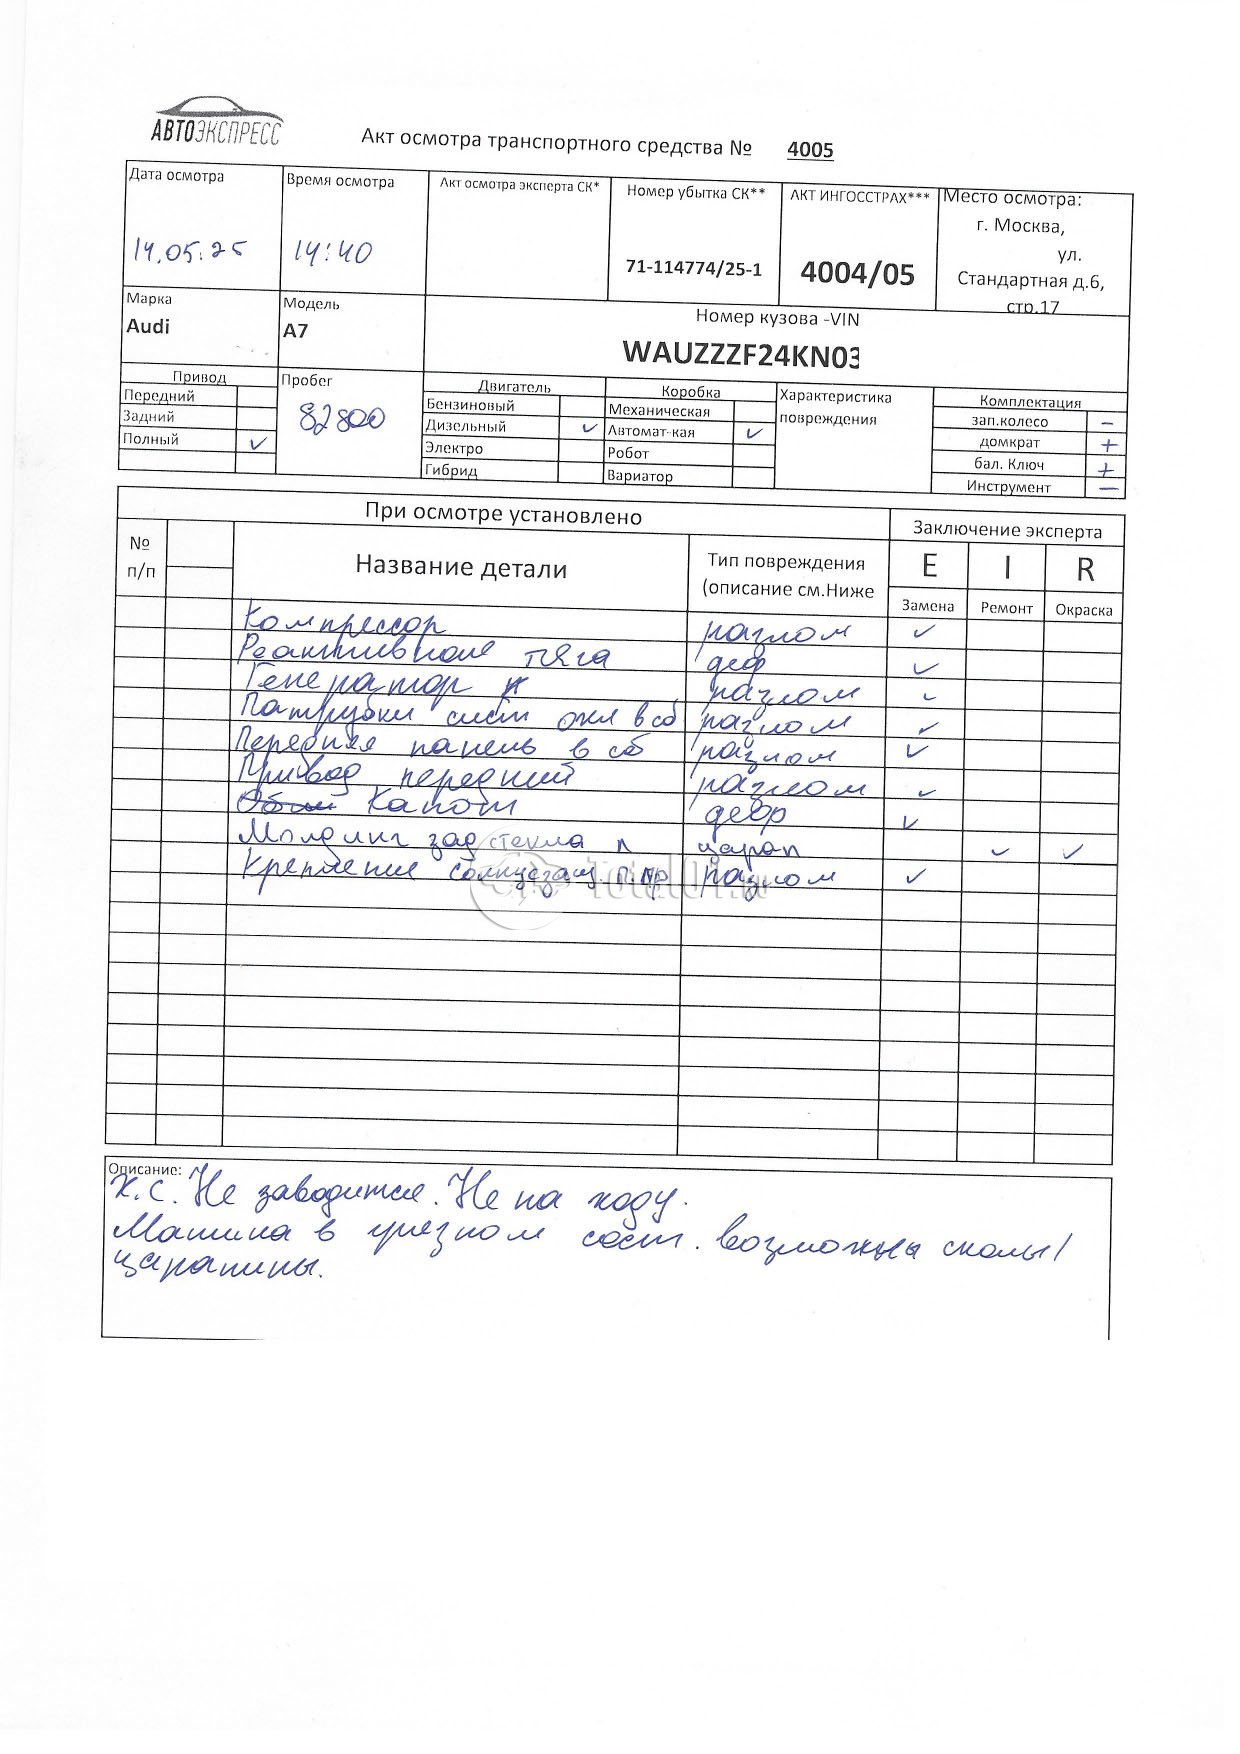 АВТОЭКСПРЕСС
Акт осмотра транспортного средства № 4005
Дата осмотра
14.05.25
Время осмотра
14:40
Акт осмотра эксперта СК*
Номер убытка СК**
71-114774/25-1
АКТ ИНГОССТРАХ***
4004/05
Место осмотра:
г. Москва,
ул.
Стандартная д.6,
стр.17
Марка
Audi
Модель
А7
Номер кузова -VIN
WAUZZZF24KN03
Привод
Передний
Задний
Полный ✓
Пробег
82800
Двигатель
Бензиновый
Дизельный ✓
Электро
Гибрид
Коробка
Механическая
Автомат-кая ✓
Робот
Вариатор
Характеристика
повреждения
Комплектация
зап.колесо –
домкрат +
бал. Ключ +
Инструмент –
При осмотре установлено
Заключение эксперта
№
п/п
Название детали
Тип повреждения
(описание см.Ниже
E I R
Замена Ремонт Окраска
Компрессор разлом ✓
Реактивная тяга деф ✓
Генератор разлом ✓
Патрубки сист охл в сб разлом ✓
Передняя панель в сб разлом ✓
Привод передний разлом ✓
Капот дефр ✓
Молдинг зад стекла п царап ✓ ✓
Крепление солнцезащ. п.пр разлом ✓
TotalOf.ru
Описание:
Х.С. Не заводится. Не на ходу.
Машина в грязном сост. возможны сколы/
царапины.